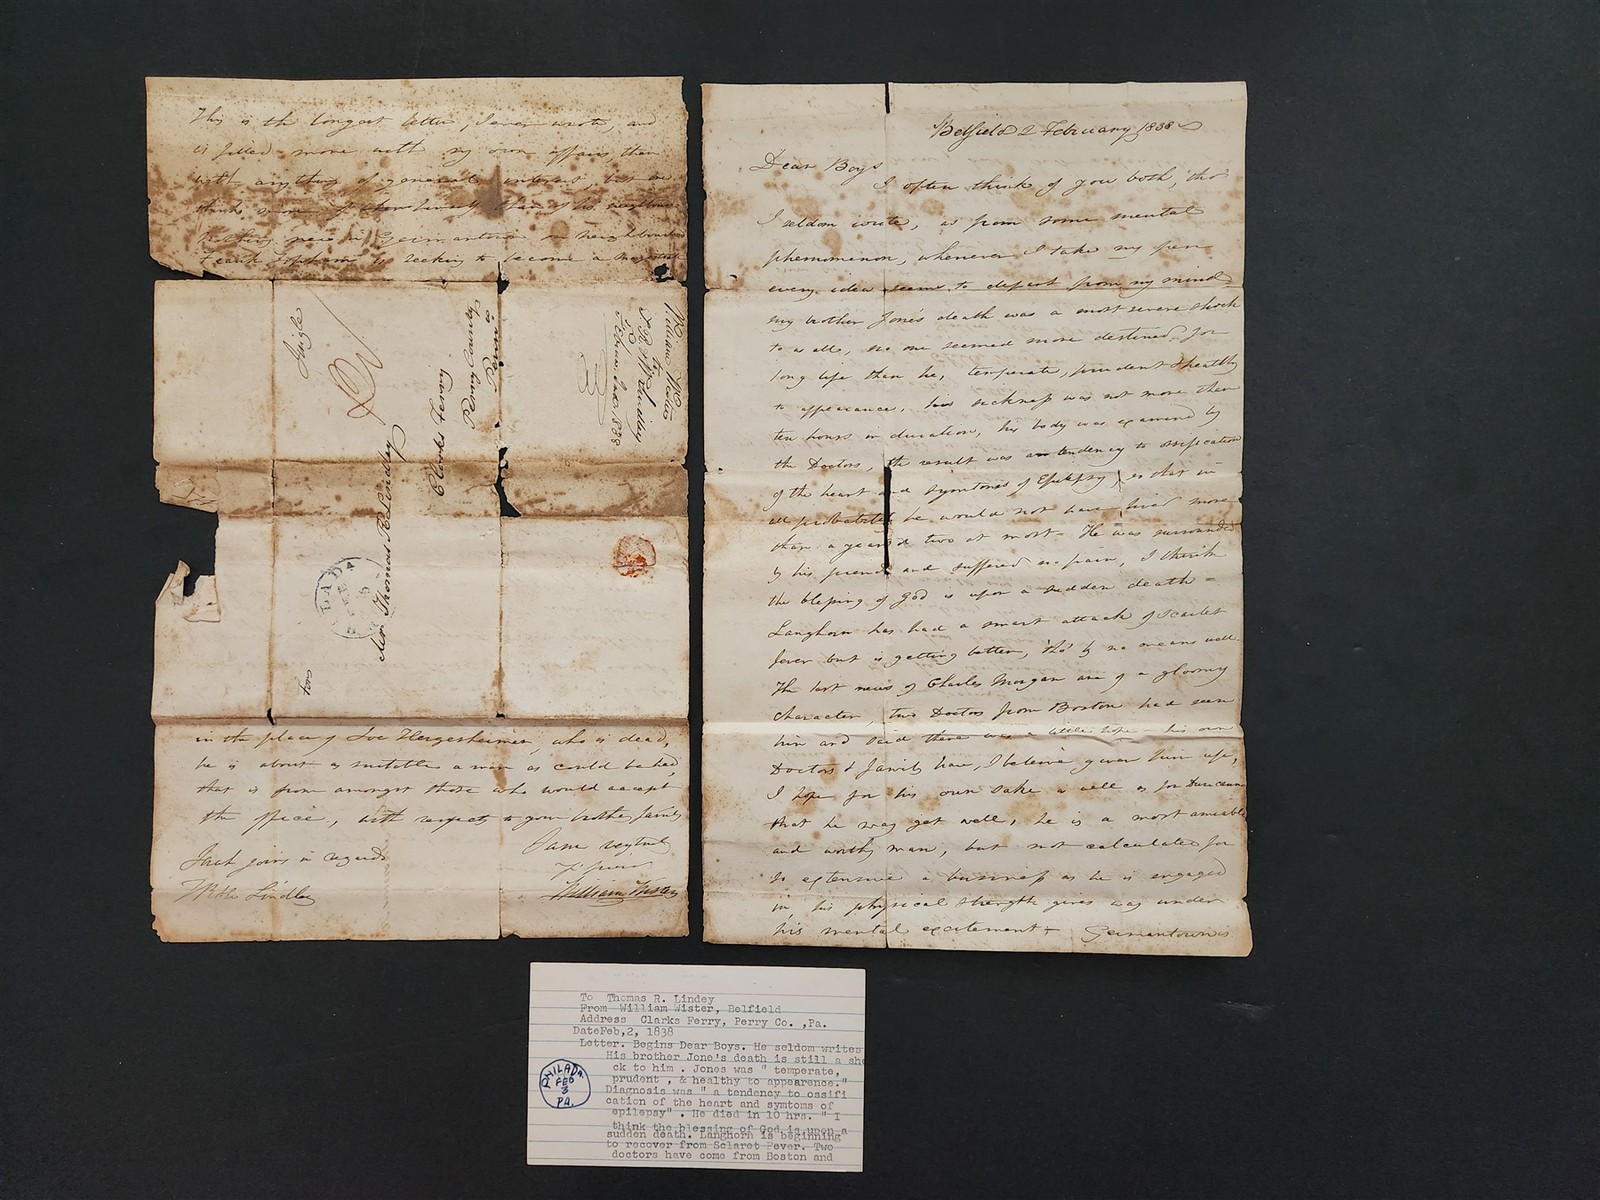 This is the longest letter, I ever wrote, and
is filled more with my own affairs, than
with anything of general interest, but we
think more of
nothing new in Germantown or neighbourhood
is seeking to become a
Single
William Wister
to
T R & H Lindley
February 2 1838
Mr Thomas R Lindley
Clarks Ferry
Perry County
Penna
PHILADA
FEB
in the place of Hergesheimer, who is dead,
he is about as suitable a man as could be had,
that is from amongst those who would accept
the office, with respects to your brothers family
I am very truly
Yr friend
Jack joins in regards
William Wister
Lindley
Belfield 2 February 1838
Dear Boys
I often think of you both, tho
I seldom write, as from some mental
phenominon, whenever I take my pen
every idea seems to depart from my mind
my brother Jones's death was a most severe shock
to us all, no one seemed more destined for
long life than he, temperate, prudent & healthy
to appearance, his sickness was not more than
ten hours in duration, his body was examined by
the Doctors, the result was a tendency to ossification
of the heart and symtoms of Epilepsy, so that in
all probability he would not have lived more
than a year or two at most – He was surrounded
by his friends and suffered no pain, I think
the blessing of God is upon a sudden death –
Langhorn has had a smart attack of Scarlet
fever but is getting better, tho' by no means well
The last news of Charles Morgan are of a gloomy
character, two Doctors from Boston had seen
him and said there was a little hope – his own
Doctors & family have, I beleive given him up,
I hope for his own sake as well as for Duncannon
that he may get well, he is a most amiable
and worthy man, but not calculated for
so extensive a business as he is engaged
in, his physical strength gives way under
his mental excitement – Germantown is
To Thomas R. Lindey
From William Wister, Belfield
Address Clarks Ferry, Perry Co. ,Pa.
DateFeb,2, 1838
Letter. Begins Dear Boys. He seldom writes
His brother Jone's death is still a sho
ck to him . Jones was " temperate,
prudent , & healthy to appearence."
Diagnosis was " a tendency to ossifi
cation of the heart and symtoms of
epilepsy" . He died in 10 hrs. " I
think the blessing of God is upon a
sudden death. Langhorn is beginning
to recover from Sclaret Fever. Two
doctors have come from Boston and
PHILADA.
FEB
3
PA.